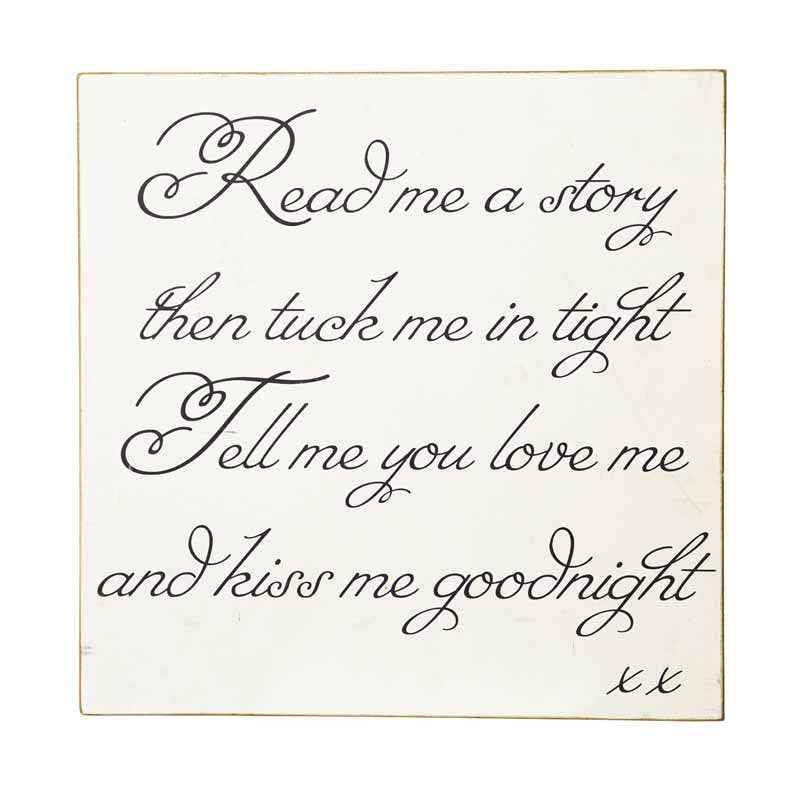 Read me a story
then tuck me in tight
Tell me you love me
and kiss me goodnight
xx